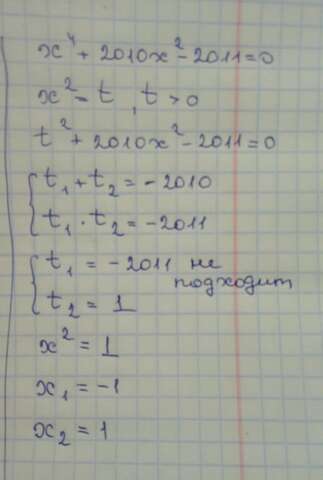 x⁴ + 2010x² - 2011 = 0
x² = t, t > 0
t² + 2010x² - 2011 = 0
t₁ + t₂ = - 2010
t₁ · t₂ = - 2011
t₁ = - 2011 не подходит
t₂ = 1
x² = 1
x₁ = -1
x₂ = 1